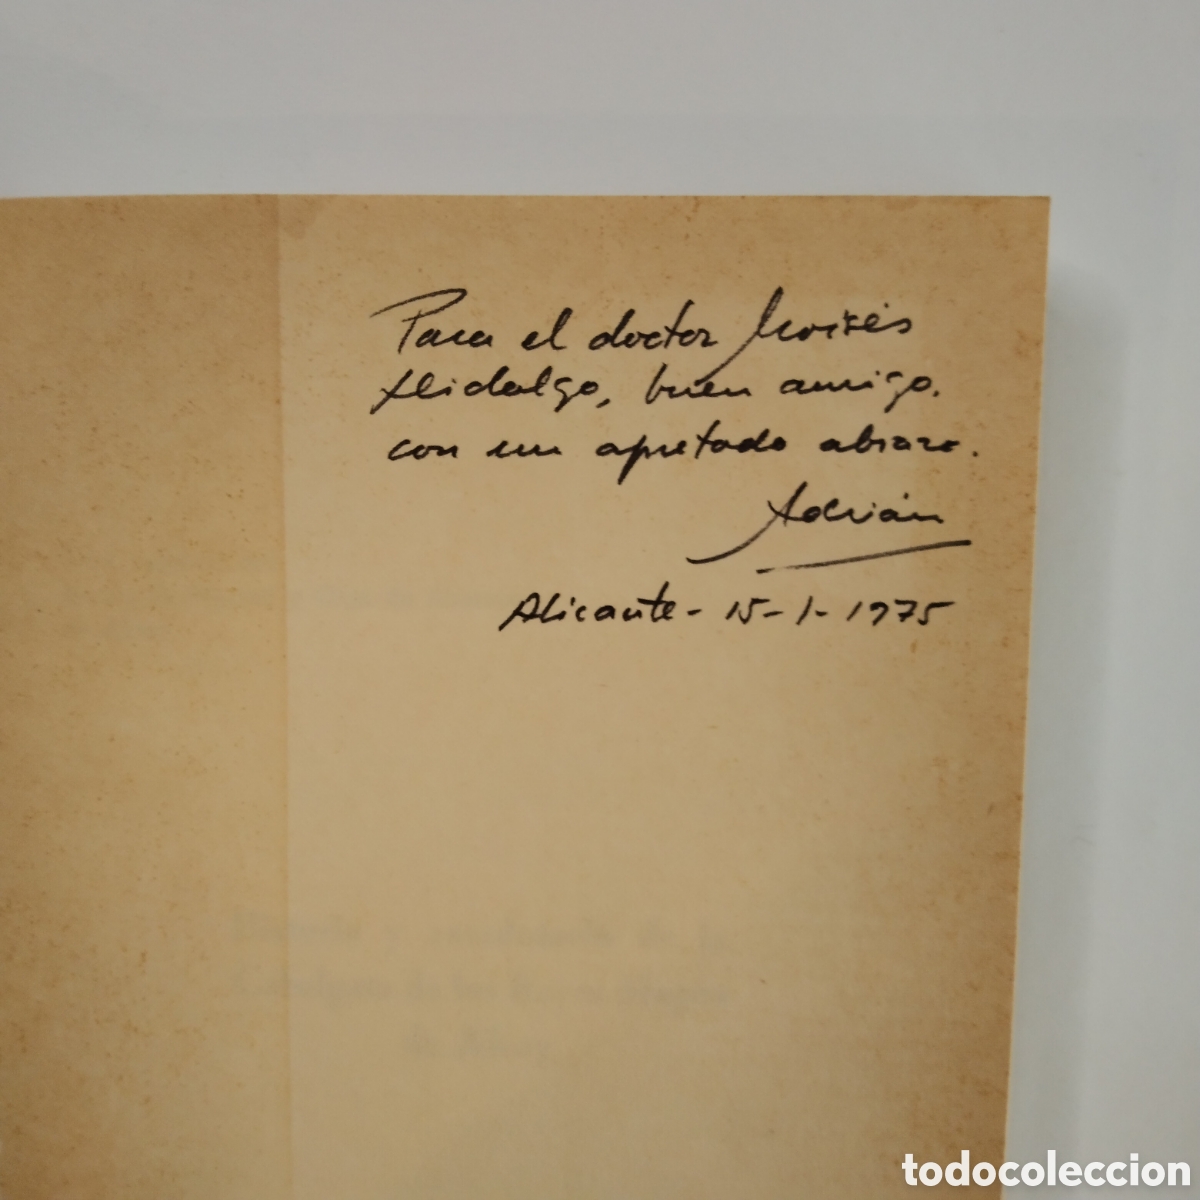 Para el doctor Moisés
Hidalgo, buen amigo.
con un apretado abrazo.
Adrián
Alicante - 15-1-1975
todocoleccion